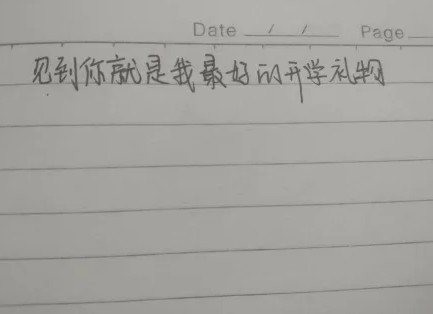 Date / / Page
见到你就是我最好的开学礼物